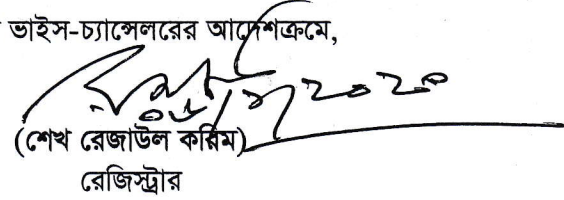 ভাইস-চ্যান্সেলরের আদেশক্রমে,
(শেখ রেজাউল করিম)
রেজিস্ট্রার